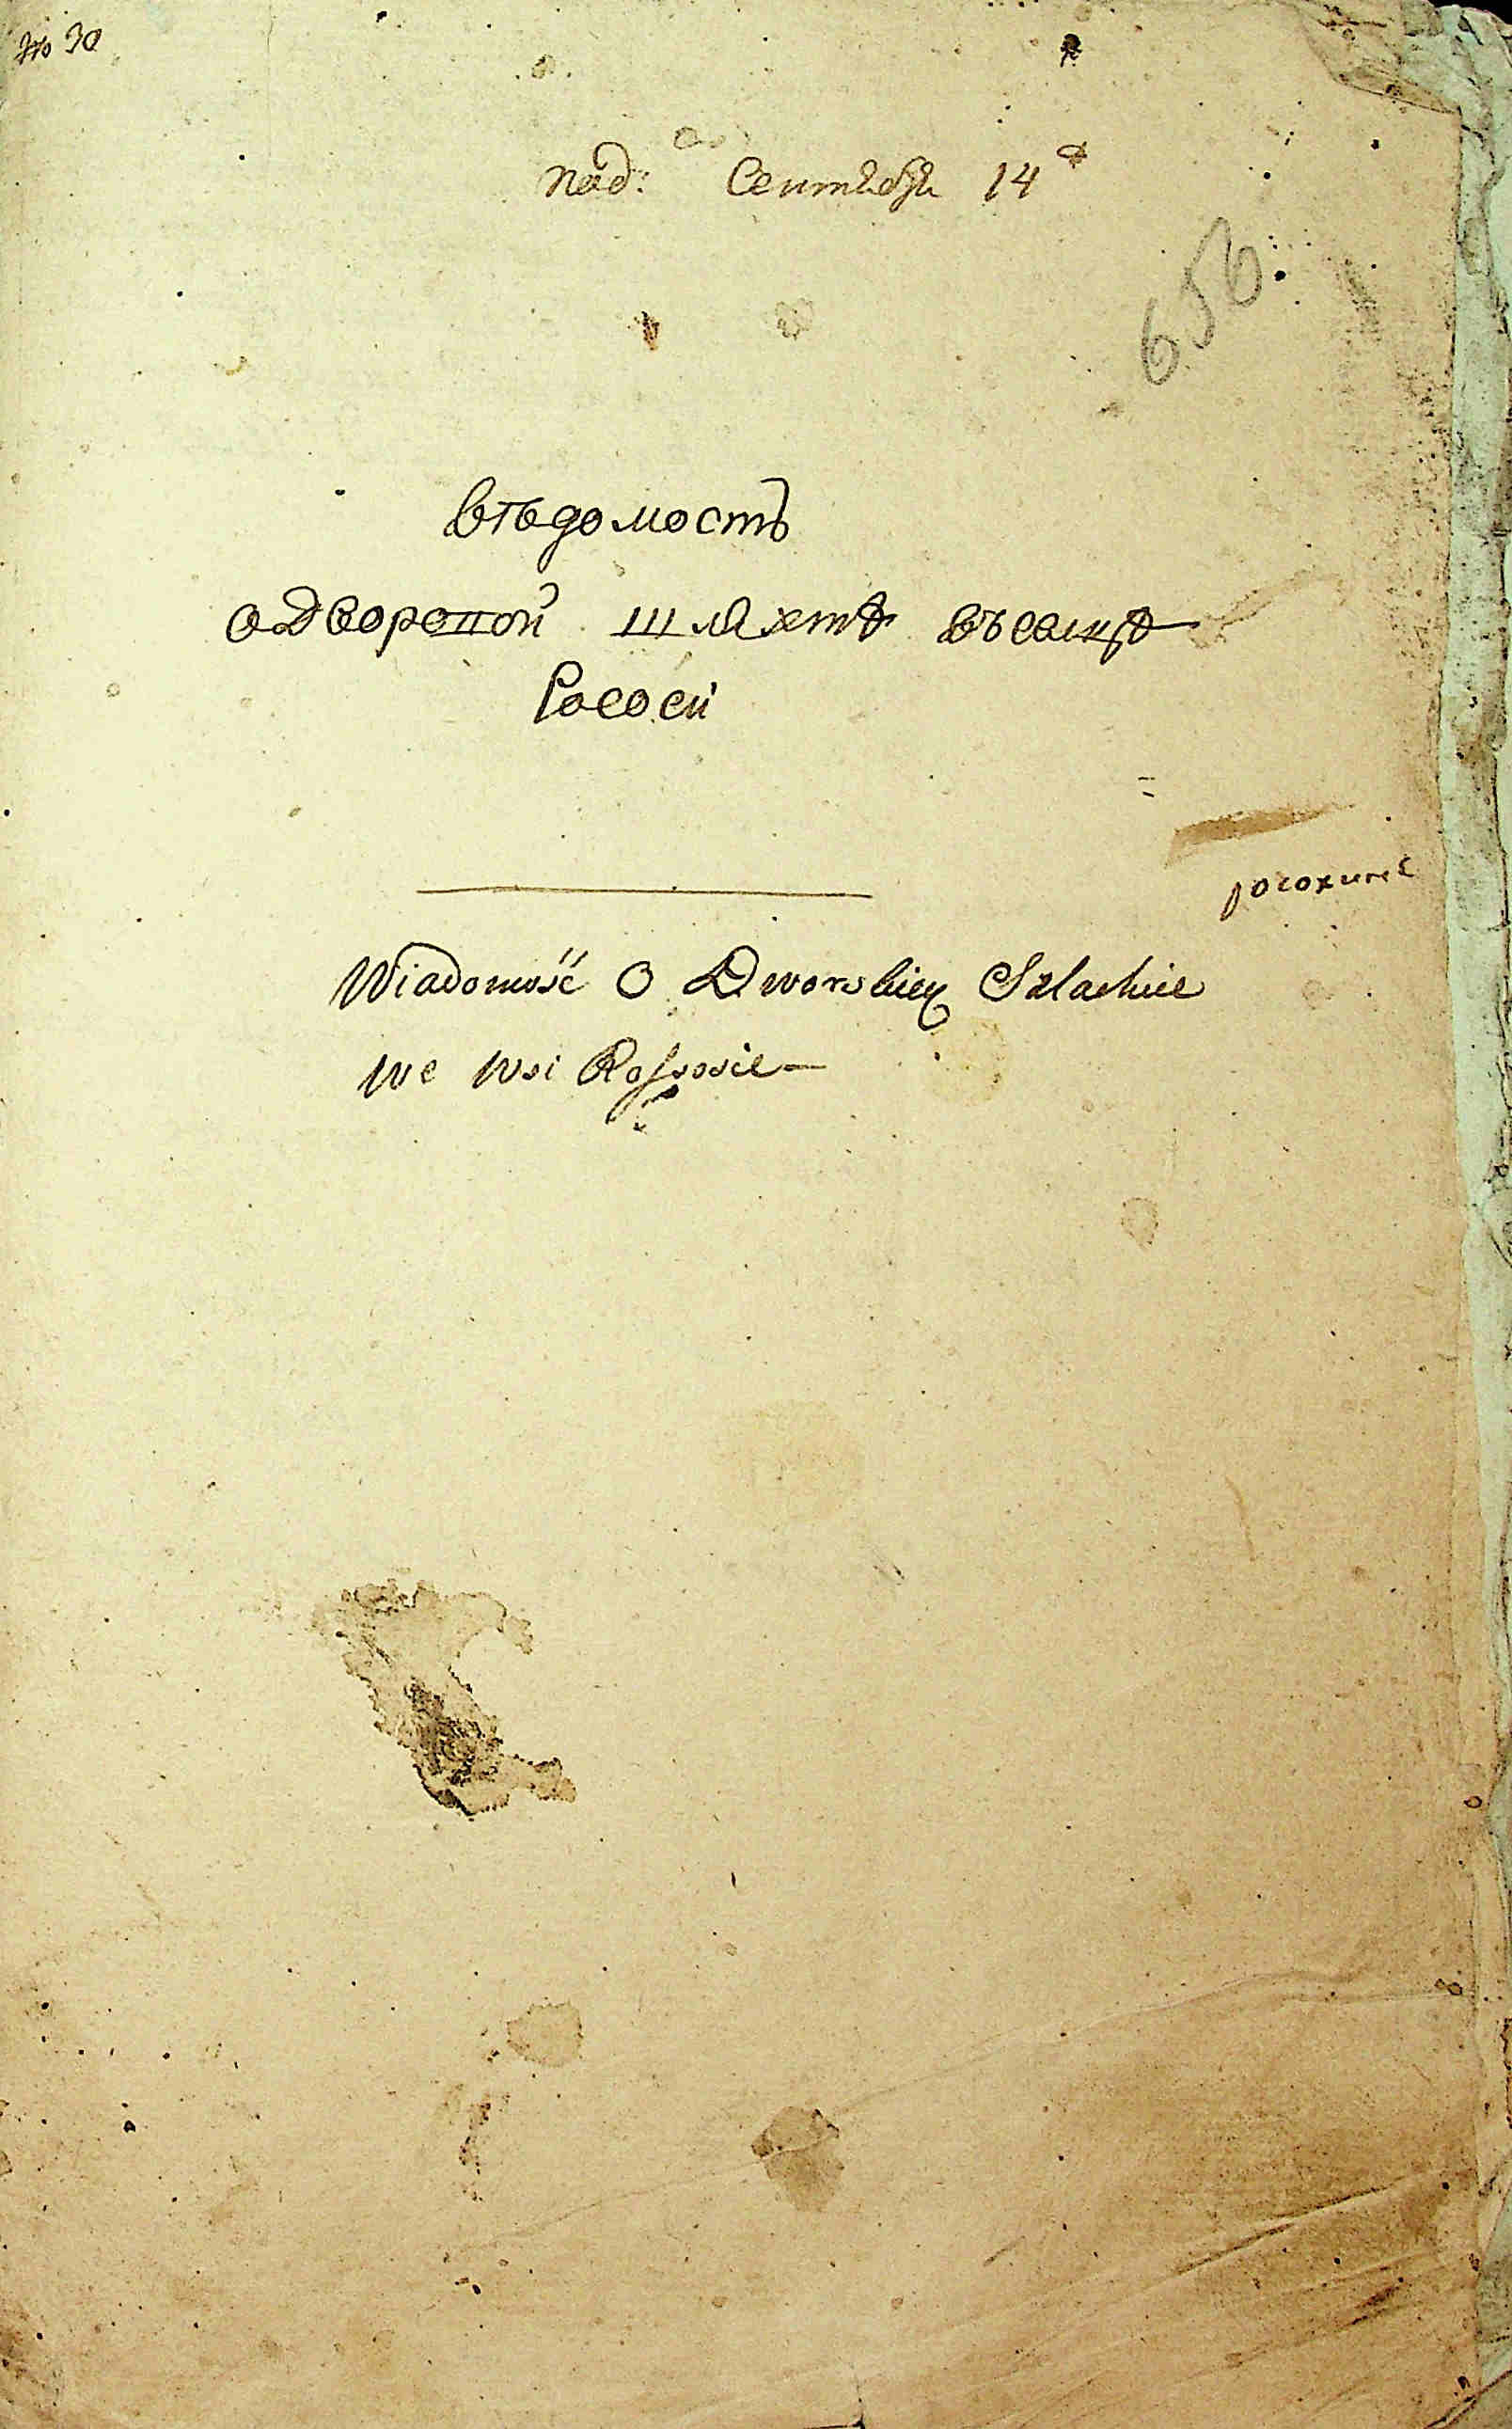 № 30
под: Сентября 14
656
вѣдомость
о дворопой шляхтѣ въ
Рососи
Wiadomość O Dworskiey Szlachcie
we Wsi Rossosie